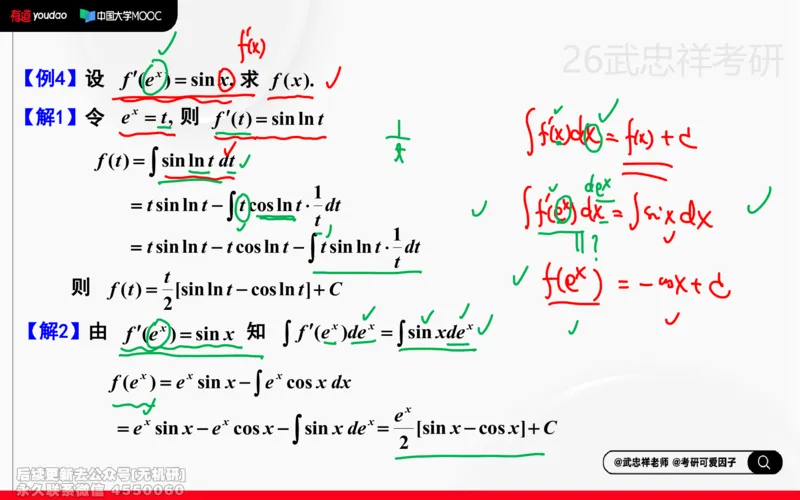 有道 youdao 中国大学MOOC
26武忠祥考研
f'(x)
【例4】设 f′(eˣ) = sin x, 求 f(x).
【解1】令 eˣ = t, 则 f′(t) = sin ln t
1/t
∫f'(x)dx = f(x) + C
f(t) = ∫ sin ln t dt
= t sin ln t − ∫ t cos ln t · 1/t dt
deˣ
∫f'(eˣ)dx = ∫sinx dx
= t sin ln t − t cos ln t − ∫ t sin ln t · 1/t dt
?
f(eˣ) = −cosx + C
则 f(t) = t/2 [sin ln t − cos ln t] + C
【解2】由 f′(eˣ) = sin x 知 ∫ f′(eˣ)deˣ = ∫ sin xdeˣ
f(eˣ) = eˣ sin x − ∫ eˣ cos x dx
= eˣ sin x − eˣ cos x − ∫ sin x deˣ = eˣ/2 [sin x − cos x] + C
@武忠祥老师 @考研可爱因子
后续更新去公众号[无机研]
永久联系微信 4550060